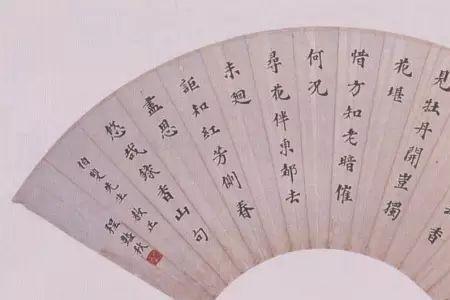 香
見牡丹開豈獨
花堪
惜方知老暗催
何況
尋花伴東都去
未迴
詎知紅芳側春
盡思
悠哉錄香山句
伯先生教正
程豔秋